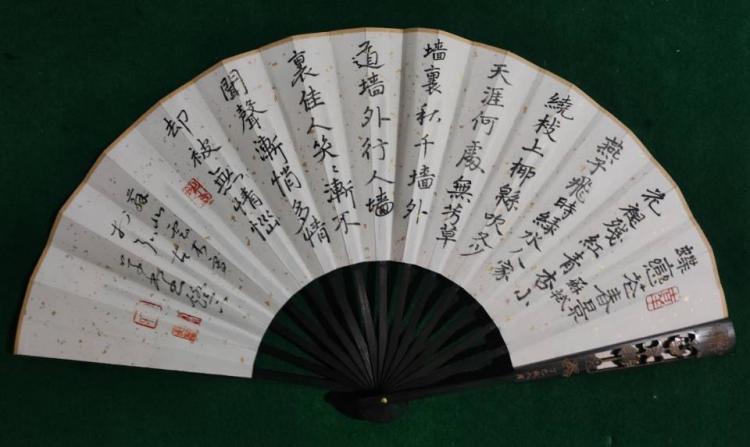 蝶戀花 春景 蘇軾
花褪残紅青杏小
燕子飛時緑水人家
繞枝上柳緜吹又少
天涯何處無芳草
墙裏秋千墙外
道墙外行人墙
裏佳人笑〻漸不
聞聲漸悄多情
却被無情惱